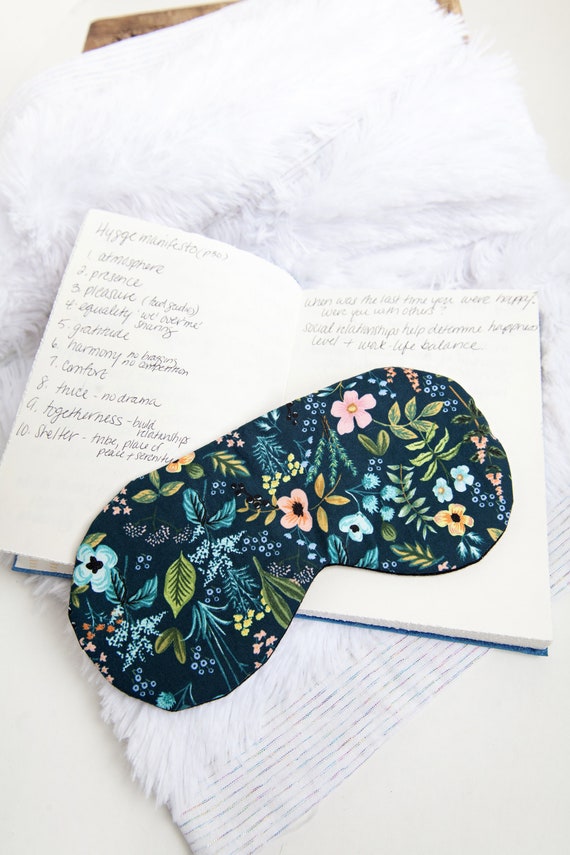 Hygge manifesto (p30)
1. atmosphere
2. presence
3. pleasure (food goodies)
4. equality 'we' over 'me'
sharing
5. gratitude
6. harmony no bragging
no competition
7. comfort
8. truce - no drama
9. togetherness - build
relationships
10. Shelter - tribe, place of
peace + serenity
When was the last time you were happy.
Were you with others?
social relationships help determine happiness
level + work-life balance